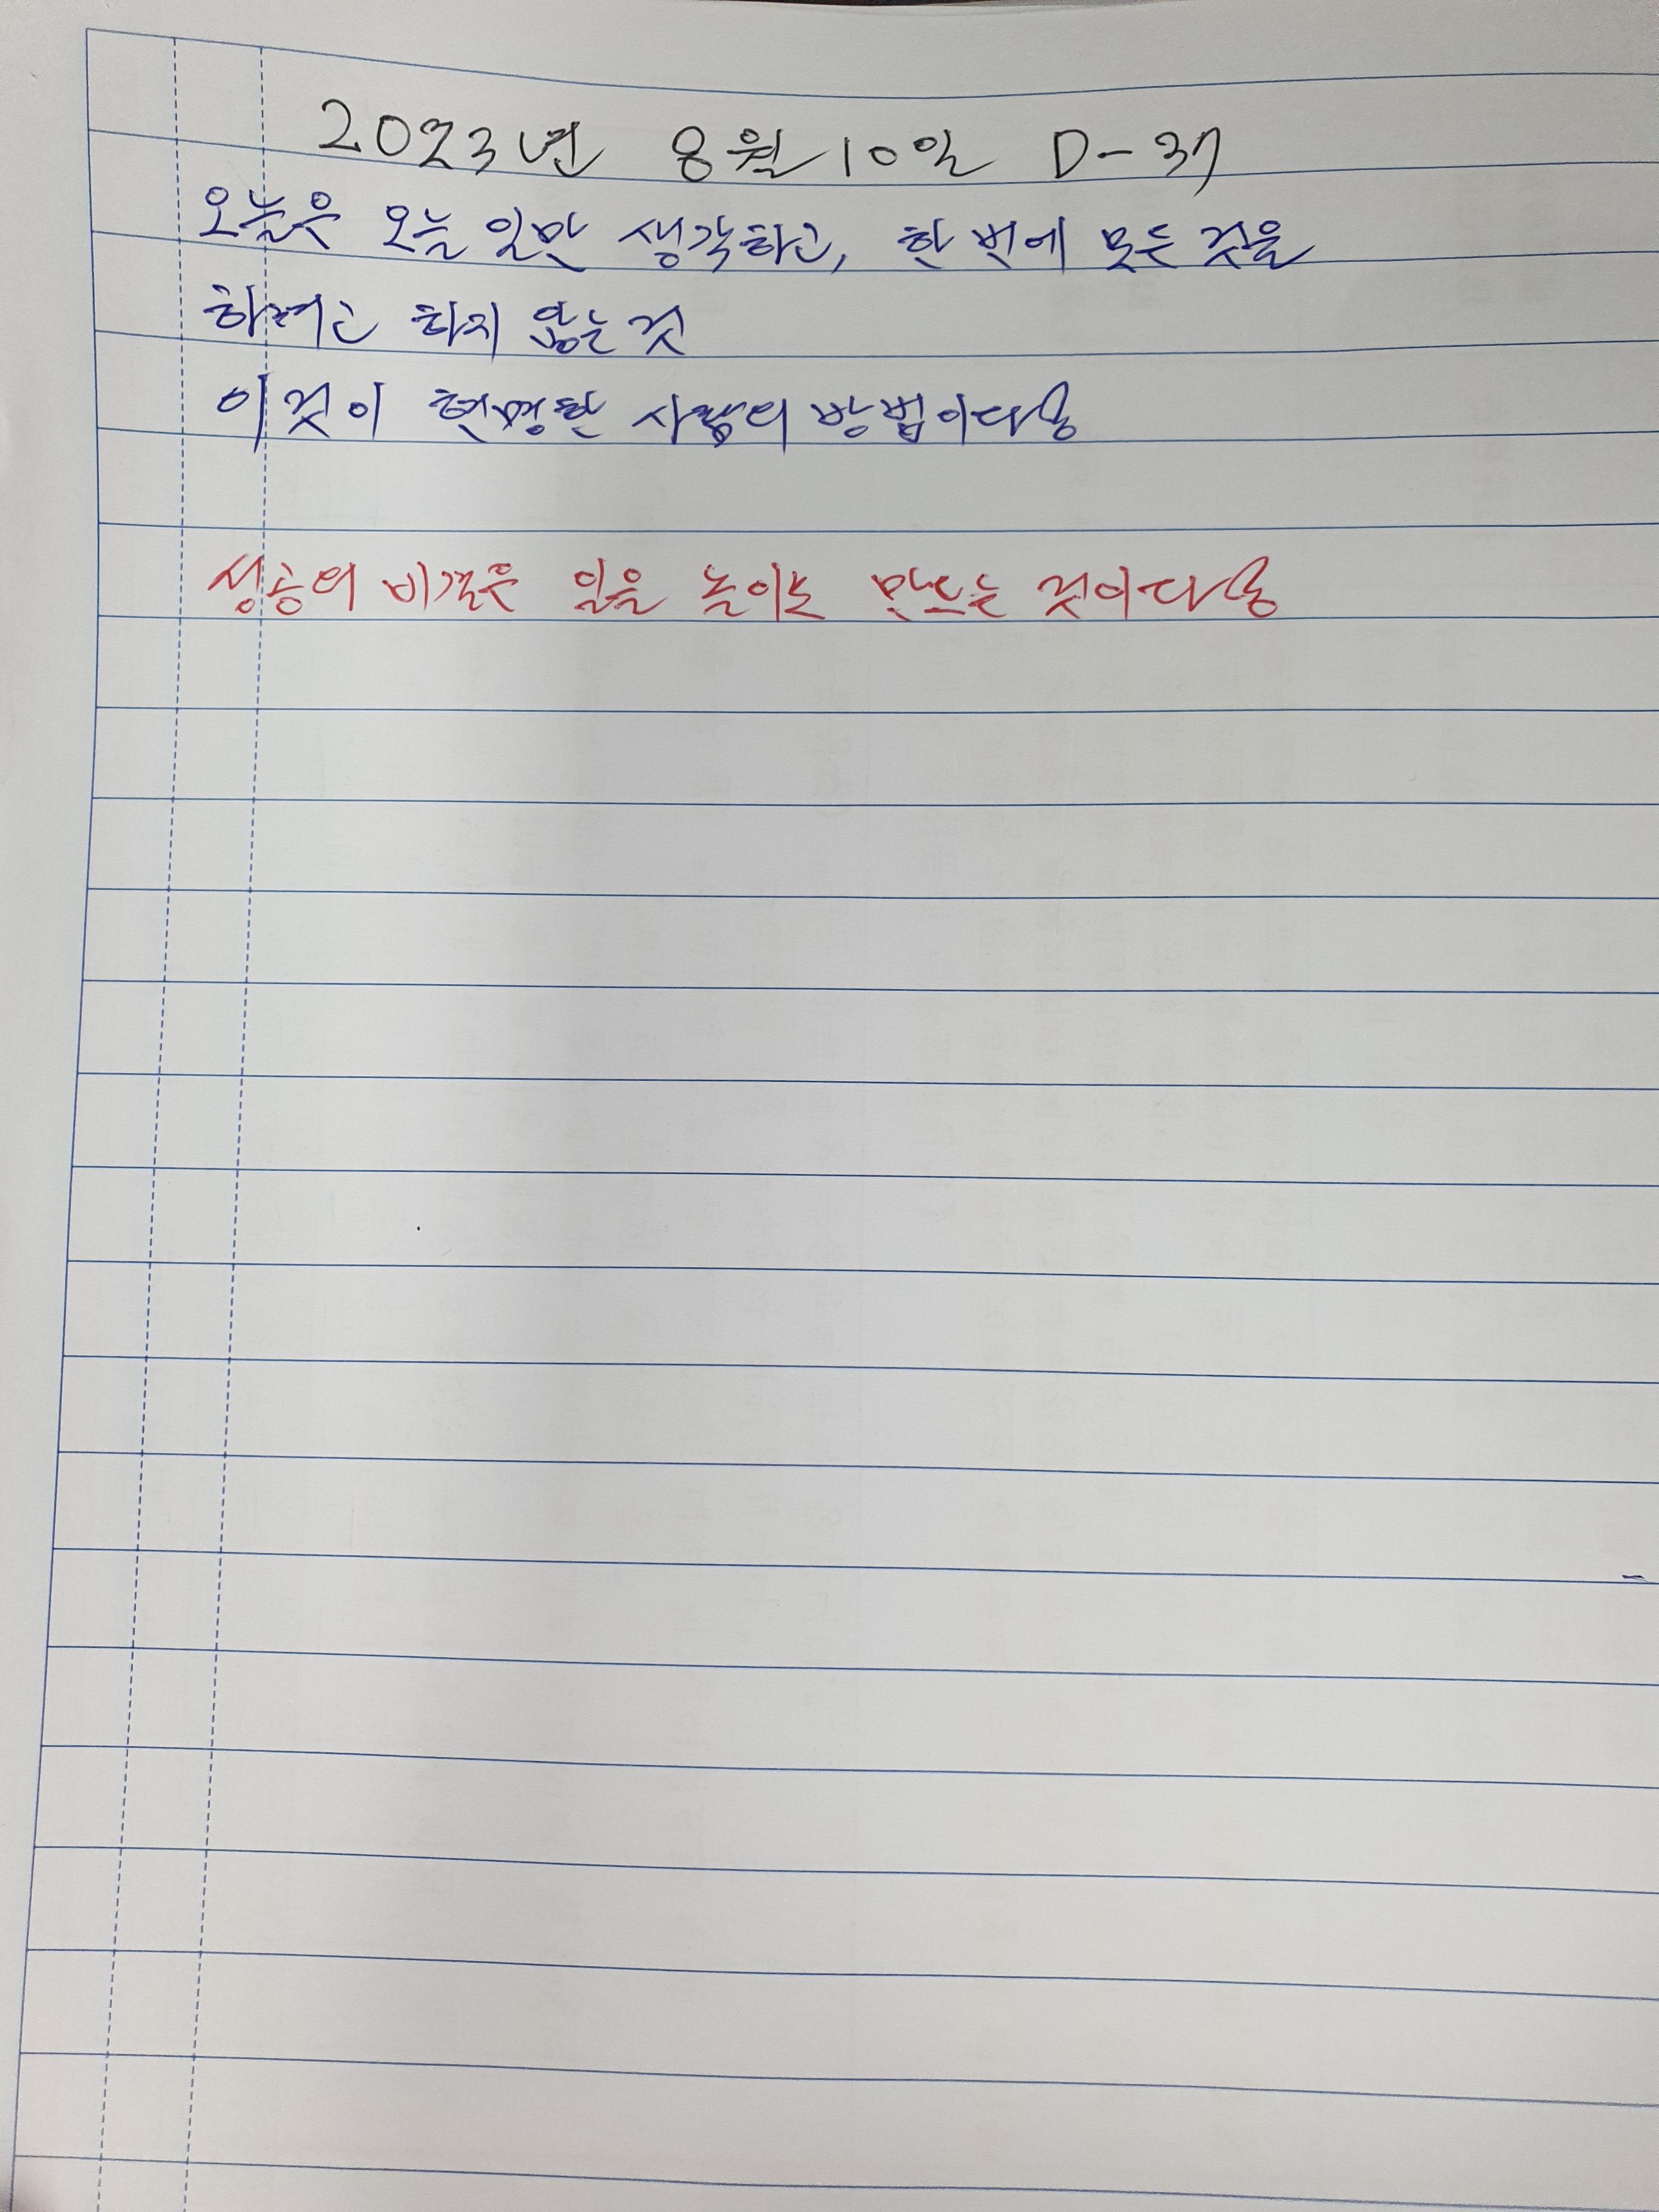 2023년 8월 10일 D-37
오늘은 오늘 일만 생각하고, 한 번에 모든 것을
하려고 하지 않는 것
이것이 현명한 사람의 방법이다.
성공의 비결은 일을 놀이로 만드는 것이다.